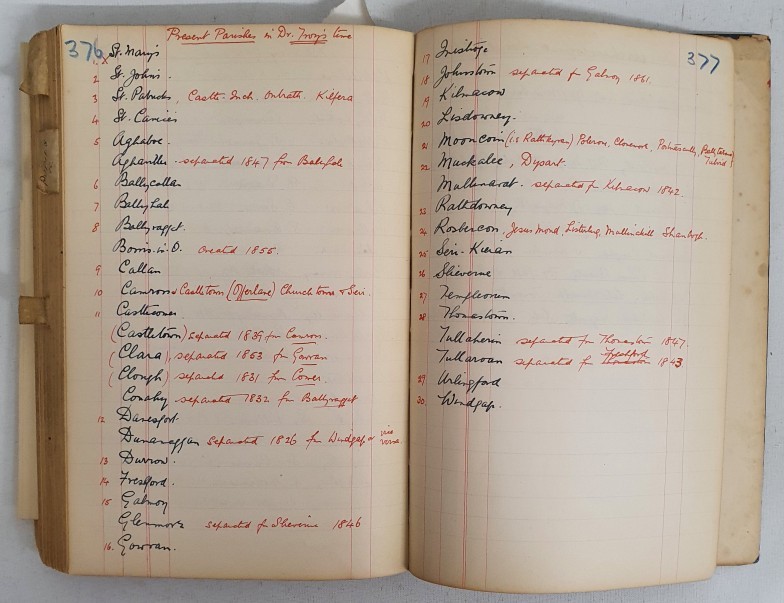 376
Present Parishes in Dr. Troy's time
1. x St. Mary's
2 St. John's.
3 St. Patricks, Castle-Inch. Outrath. Kilfera
4 St. Canices
5 Aghaboe.
Aghavillar - separated 1847 from Ballyhale
6 Ballycallan
7 Ballyhale
8 Ballyragget.
Borris-in-O. created 1855.
9 Callan
10 Camross & Castletown (Offerlane) Churchtown & Seir.
11 Castlecomer.
(Castletown) separated 1839 for Camross.
(Clara), separated 1853 fr Gowran
(Clough) separated 1831 fr Comer.
Conahy separated 1832 fr Ballyragget
12 Danesfort.
Dunamaggan separated 1826 fr Windgap or vice versa
13 Durrow.
14 Freshford.
15 Galmoy
Glenmore separated fr Slieverue 1846
16. Gowran.
377
17 Inistioge
18 Johnstown separated fr Galmoy 1861.
19 Kilmacow
20 Lisdowney.
21 Mooncoin (i.e. Rathkyran) Polerone, Clonmore, Portnascully, Ballytarsney Tubrid!
22 Muckalee, Dysart.
Mullinavat. separated fr Kilmacow 1842.
23 Rathdowney
24 Rosbercon, Jesus Mond, Listerlin, Mullinakill Shanbogh.
25 Seir-Kieran
26 Slieverue
27 Templeorum
28 Thomastown.
Tullaherin separated fr Thomastown 1847.
Tullaroan separated fr Freshford 1843
29 Urlingford
30 Windgap.